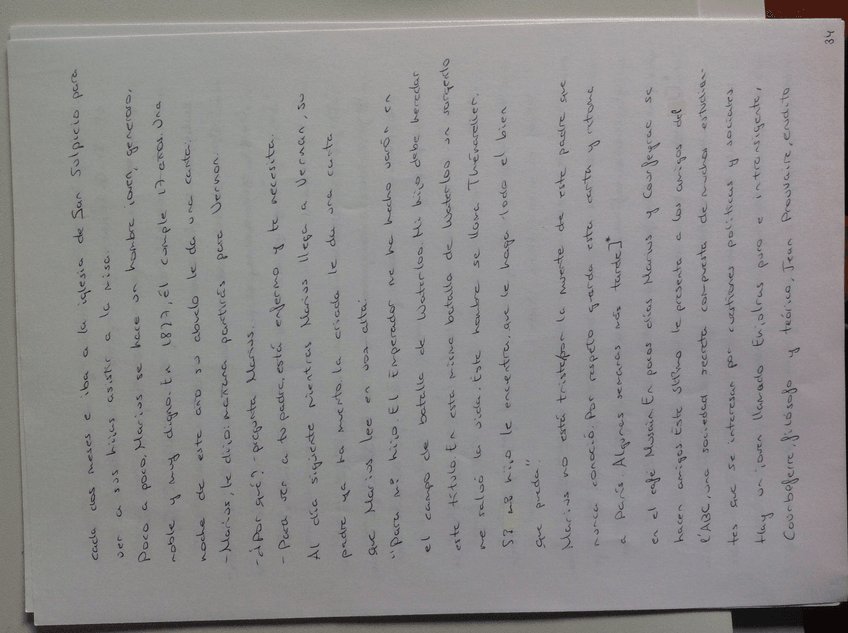 34
cada dos meses e iba a la iglesia de San Sulpicio para
ver a sus hijas asistir a la misa.
Poco a poco, Marius se hace un hombre joven, generoso,
noble y muy digno. En 1827, él cumple 17 años. Una
noche de este año su abuelo le da una carta:
- Marius, le dijo: mañana partirás para Vernon.
- ¿Por qué? - pregunta Marius.
- Para ver a tu padre, está enfermo y te necesita.
Al día siguiente mientras Marius llega a Vernan, su
padre ya ha muerto. La criada le da una carta
que Marius lee en vos alta:
"Para mi hijo. El Emperador me ha hecho varón en
el campo de batalla de Waterloo. Mi hijo debe heredar
este título. En esta misma batalla de Waterloo un sargento
me salvó la vida. Este hombre se llama Thénardier.
Si mi hijo le encuentra, que le haga todo el bien
que pueda".
Marius no está triste con la muerte de este padre que
nunca conoció. Por respeto guarda esta carta y retorna
a París. Algunas semanas más tarde]*
en el café Musain. En pocos días Marius y Courfeyrac se
hacen amigos. Este último le presenta a los amigos del
l'ABC, una sociedad secreta compuesta de muchos estudian-
tes que se interesan por cuestiones políticas y sociales.
Hay un joven llamado Enjolras puro e intransigente,
Courboferre, filósofo y teórico, Jean Prouvaire, erudito